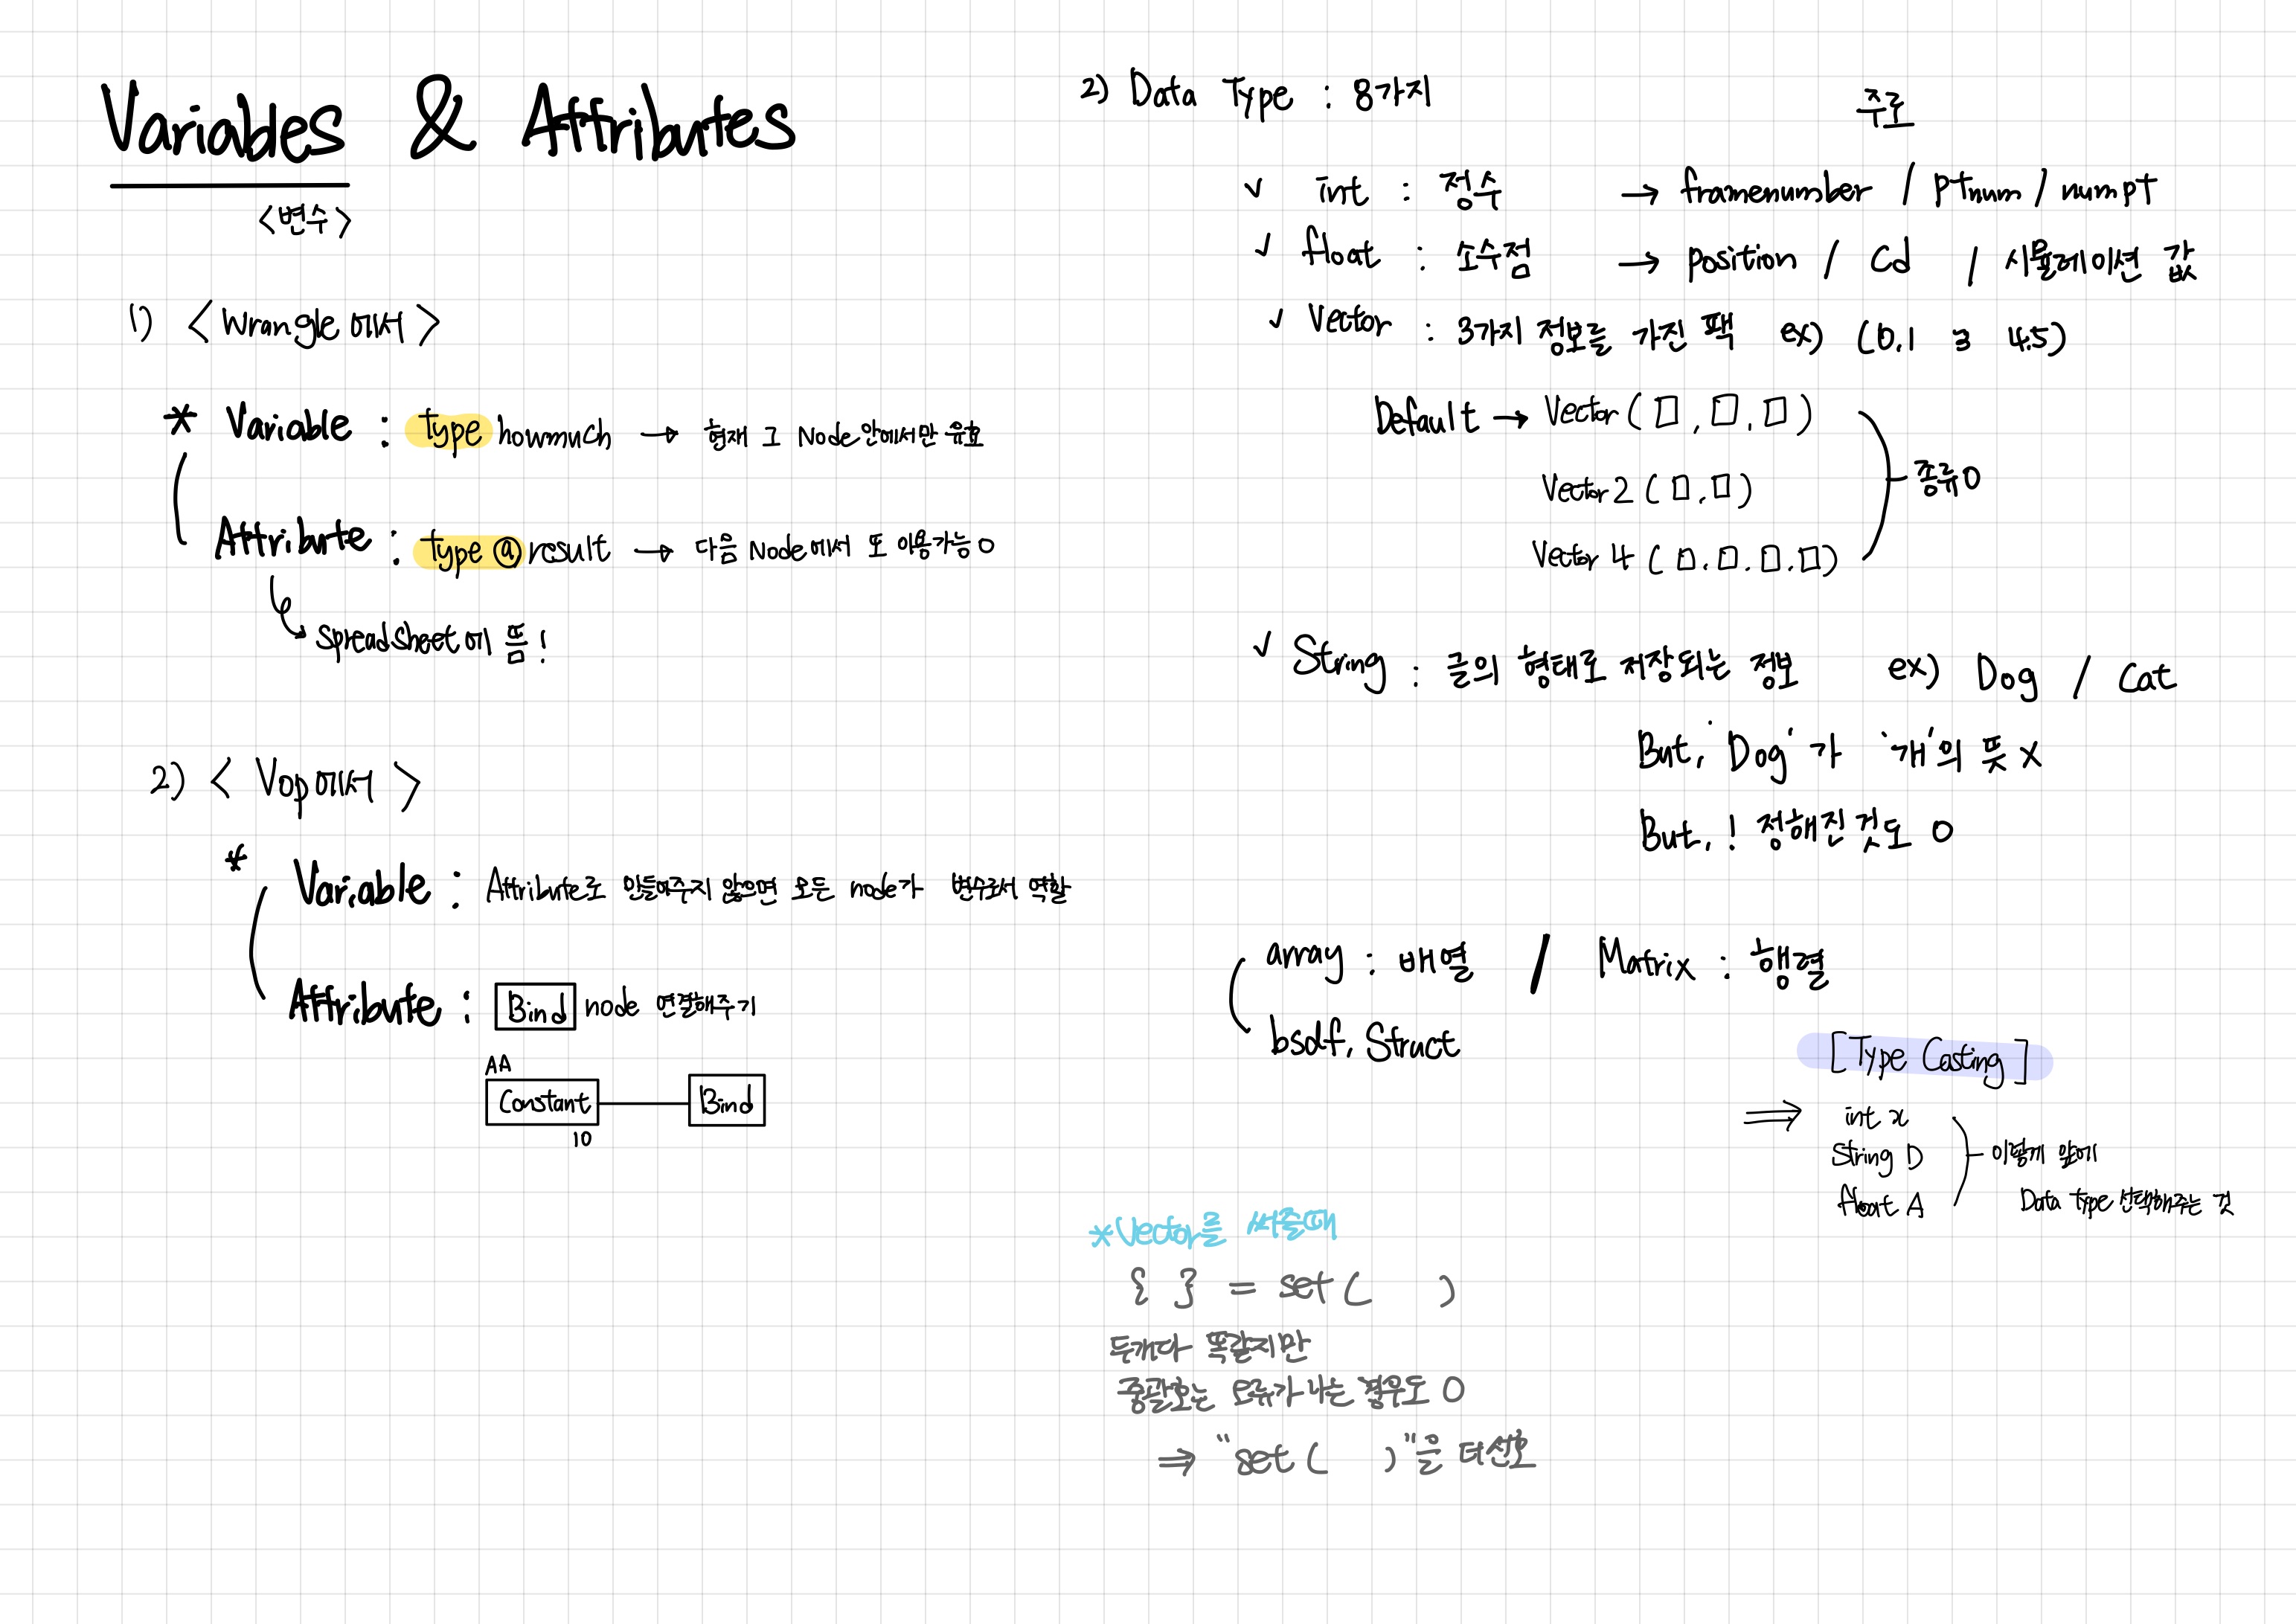 Variables & Attributes
<변수>
1) <Wrangle에서>
* Variable : type howmuch → 현재 그 Node 안에서만 유효
Attribute : type @ result → 다음 Node에서 또 이용가능 O
Spreadsheet에 뜸!
2) < Vop에서 >
* Variable : Attribute로 만들어주지 않으면 모든 node가 변수로서 역할
Attribute : Bind node 연결해주기
AA
Constant Bind
10
2) Data Type : 8가지
주로
✓ int : 정수 → framenumber / ptnum / numpt
✓ float : 소수점 → position / Cd / 시뮬레이션 값
✓ Vector : 3가지 정보를 가진 팩 ex) (0,1 3 4.5)
Default → Vector ( □ , □ , □ )
Vector 2 ( □ , □ )
종류 O
Vector 4 ( □ . □ . □ . □ )
✓ String : 글의 형태로 저장되는 정보 ex) Dog / Cat
But, 'Dog'가 '개'의 뜻 X
But, ! 정해진 것도 O
array : 배열 / Matrix : 행렬
bsdf, Struct
[Type Casting]
⇒ int x
String D
이렇게 앞에
float A
Data type 선택해주는 것
*Vector를 써줄때
{ } = set ( )
두개다 똑같지만
중괄호는 오류가 나는 경우도 O
⇒ "set ( )"을 더 선호